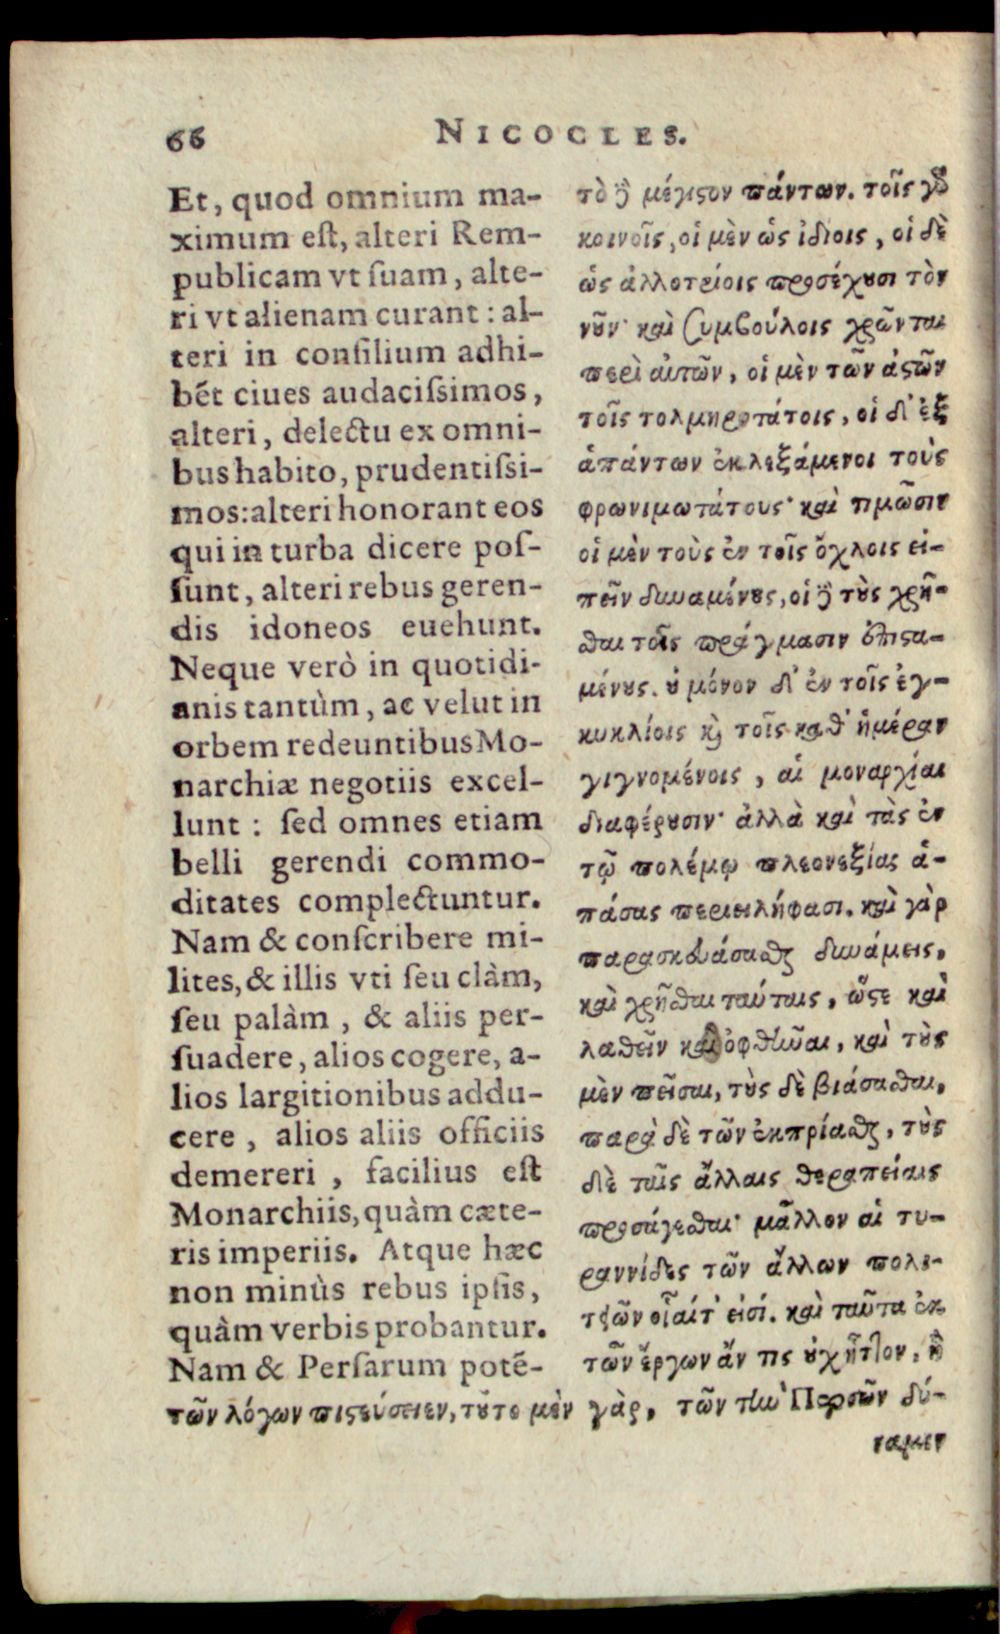 66
NICOCLES.
Et, quod omnium ma-
ximum eſt, alteri Rem-
publicam vt ſuam, alte-
ri vt alienam curant: al-
teri in conſilium adhi-
bẽt ciues audaciſsimos,
alteri, delectu ex omni-
bus habito, prudentiſsi-
mos: alteri honorant eos
qui in turba dicere poſ-
ſunt, alteri rebus geren-
dis idoneos euehunt.
Neque verò in quotidi-
anis tantùm, ac velut in
orbem redeuntibus Mo-
narchiæ negotiis excel-
lunt: ſed omnes etiam
belli gerendi commo-
ditates complectuntur.
Nam & conſcribere mi-
lites, & illis vti ſeu clàm,
ſeu palàm, & aliis per-
ſuadere, alios cogere, a-
lios largitionibus addu-
cere, alios aliis officiis
demereri, facilius eſt
Monarchiis, quàm cæte-
ris imperiis. Atque hæc
non minùs rebus ipſis,
quàm verbis probantur.
Nam & Perſarum potẽ-
τὸ δὲ μέγιϛον πάντων. τοῖς γὸ
κοινοῖς, οἱ μὲν ὡς ἰδίοις, οἱ δὲ
ὡς ἀλλοτρίοις προσέχουσι τὸν
νοῦν· καὶ συμβούλοις χρῶνται
περὶ αὐτῶν, οἱ μὲν τῶν ἀϛῶν
τοῖς τολμηροτάτοις, οἱ δ' ἐξ
ἁπάντων ἐκλεξάμενοι τοὺς
φρονιμωτάτους· καὶ τιμῶσιν
οἱ μὲν τοὺς ἐν τοῖς ὄχλοις εἰ-
πεῖν δυναμένους, οἱ δὲ τοὺς χρῆ-
σθαι τοῖς πράγμασιν ἐπιϛα-
μένους. οὐ μόνον δ' ἐν τοῖς ἐγ-
κυκλίοις καὶ τοῖς καθ' ἡμέραν
γιγνομένοις, αἱ μοναρχίαι
διαφέρουσιν· ἀλλὰ καὶ τὰς ἐν
τῷ πολέμῳ πλεονεξίας ἁ-
πάσας περιειλήφασι. καὶ γὰρ
παρασκευάσασθαι δυνάμεις,
καὶ χρῆσθαι ταύταις, ὥϛε καὶ
λαθεῖν καὶ ὀφθῆναι, καὶ τοὺς
μὲν πεῖσαι, τοὺς δὲ βιάσασθαι,
παρὰ δὲ τῶν ἐκπρίασθαι, τοὺς
δὲ ταῖς ἄλλαις θεραπείαις
προσάγεσθαι· μᾶλλον αἱ τυ-
ραννίδες τῶν ἄλλων πολι-
τειῶν οἷαί τ' εἰσί. καὶ ταῦτα ἐκ
τῶν ἔργων ἄν τις οὐχ ἧττον, ἢ
τῶν λόγων πιϛεύσειεν, τοῦτο μὲν γὰρ, τῶν τὴν Περσῶν δύ-
ναμιν